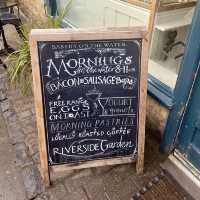 BAKERY ON THE WATER
MORNINGS
on the water 8-11
BACON or SAUSAGE Baps
FREE RANGE
EGGS
ON TOAST
YOGURT
& granola
MORNING PASTRIES
ROASTED COFFEE
RIVERSIDE Garden